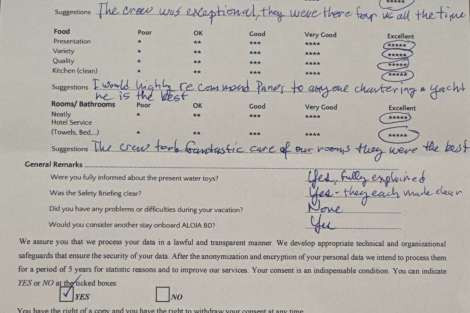 Suggestions The crew was exceptional, they were there four us all the time
Food Poor OK Good Very Good Excellent
Presentation * ** *** **** *****
Variety * ** *** **** *****
Quality * ** *** **** *****
Kitchen (clean) * ** *** **** *****
Suggestions I would highly recommend Panos to anyone chartering a yacht
he is the best
Rooms/ Bathrooms Poor OK Good Very Good Excellent
Neatly * ** *** **** *****
Hotel Service
(Towels, Bed...) * ** *** **** *****
Suggestions The crew took fantastic care of our rooms they were the best
General Remarks
Were you fully informed about the present water toys? Yes, fully explained
Was the Safety Briefing clear? Yes - they each made clear
Did you have any problems or difficulties during your vacation? None
Would you consider another stay onboard ALOIA 80? Yes
We assure you that we process your data in a lawful and transparent manner. We develop appropriate technical and organizational
safeguards that ensure the security of your data. After the anonymization and encryption of your personal data we intend to process them
for a period of 5 years for statistic reasons and to improve our services. Your consent is an indispensable condition. You can indicate
YES or NO at the ticked boxes
YES NO
You have the right of a copy and you have the right to withdraw your consent at any time